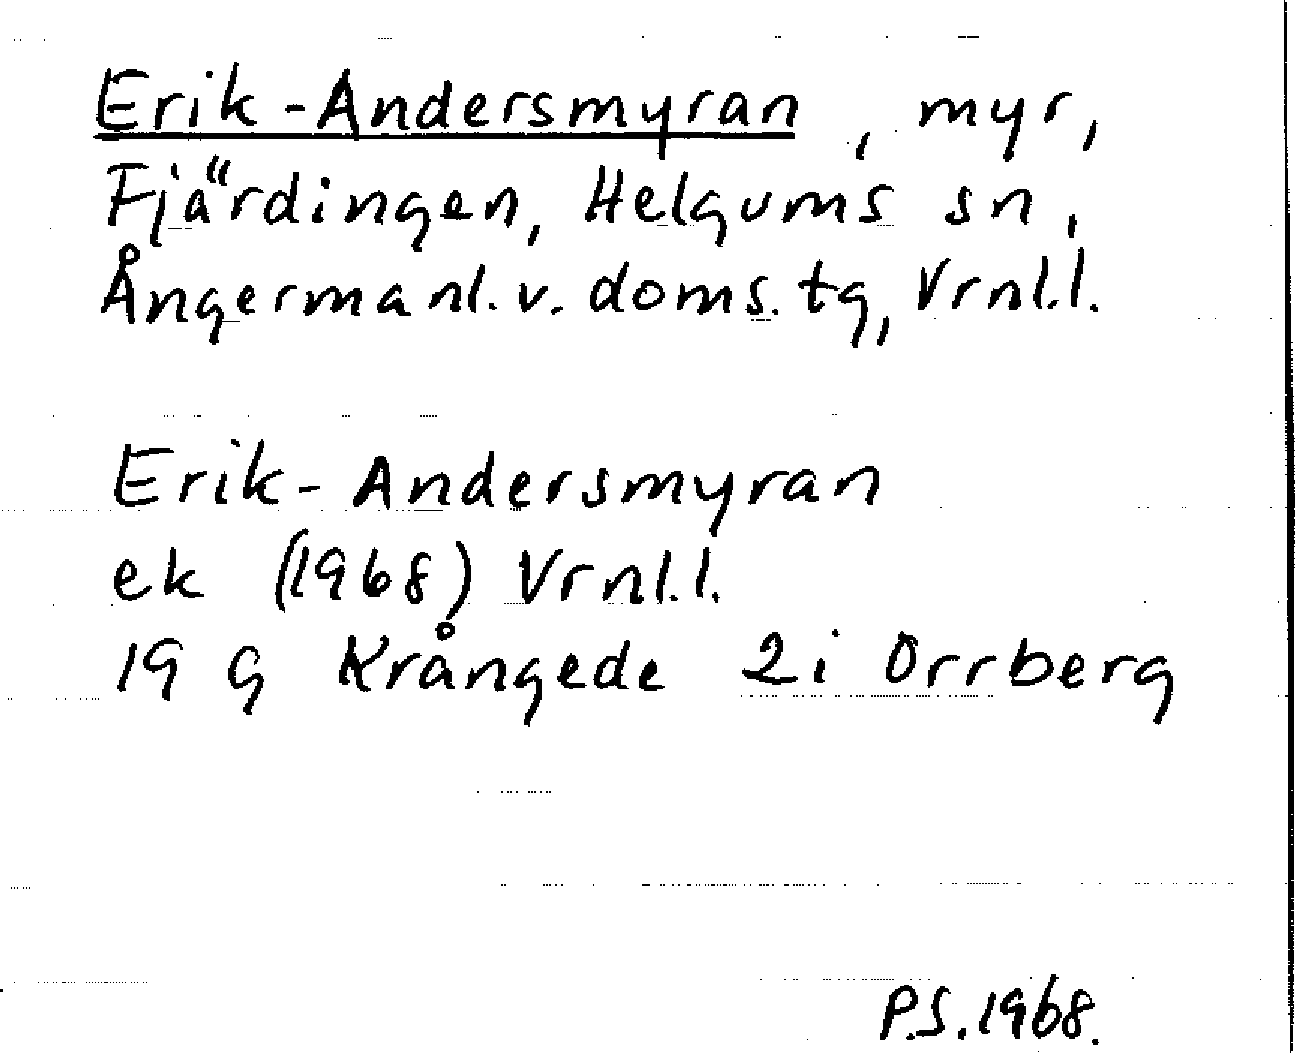 Erik-Andersmyran, myr,
Fjärdingen, Helgums sn,
Ångermanl. v. doms. tg, Vrnl.l.
Erik-Andersmyran
ek (1968) Vrnl.l.
19 G Krångede 2i Orrberg
P.S. 1968.